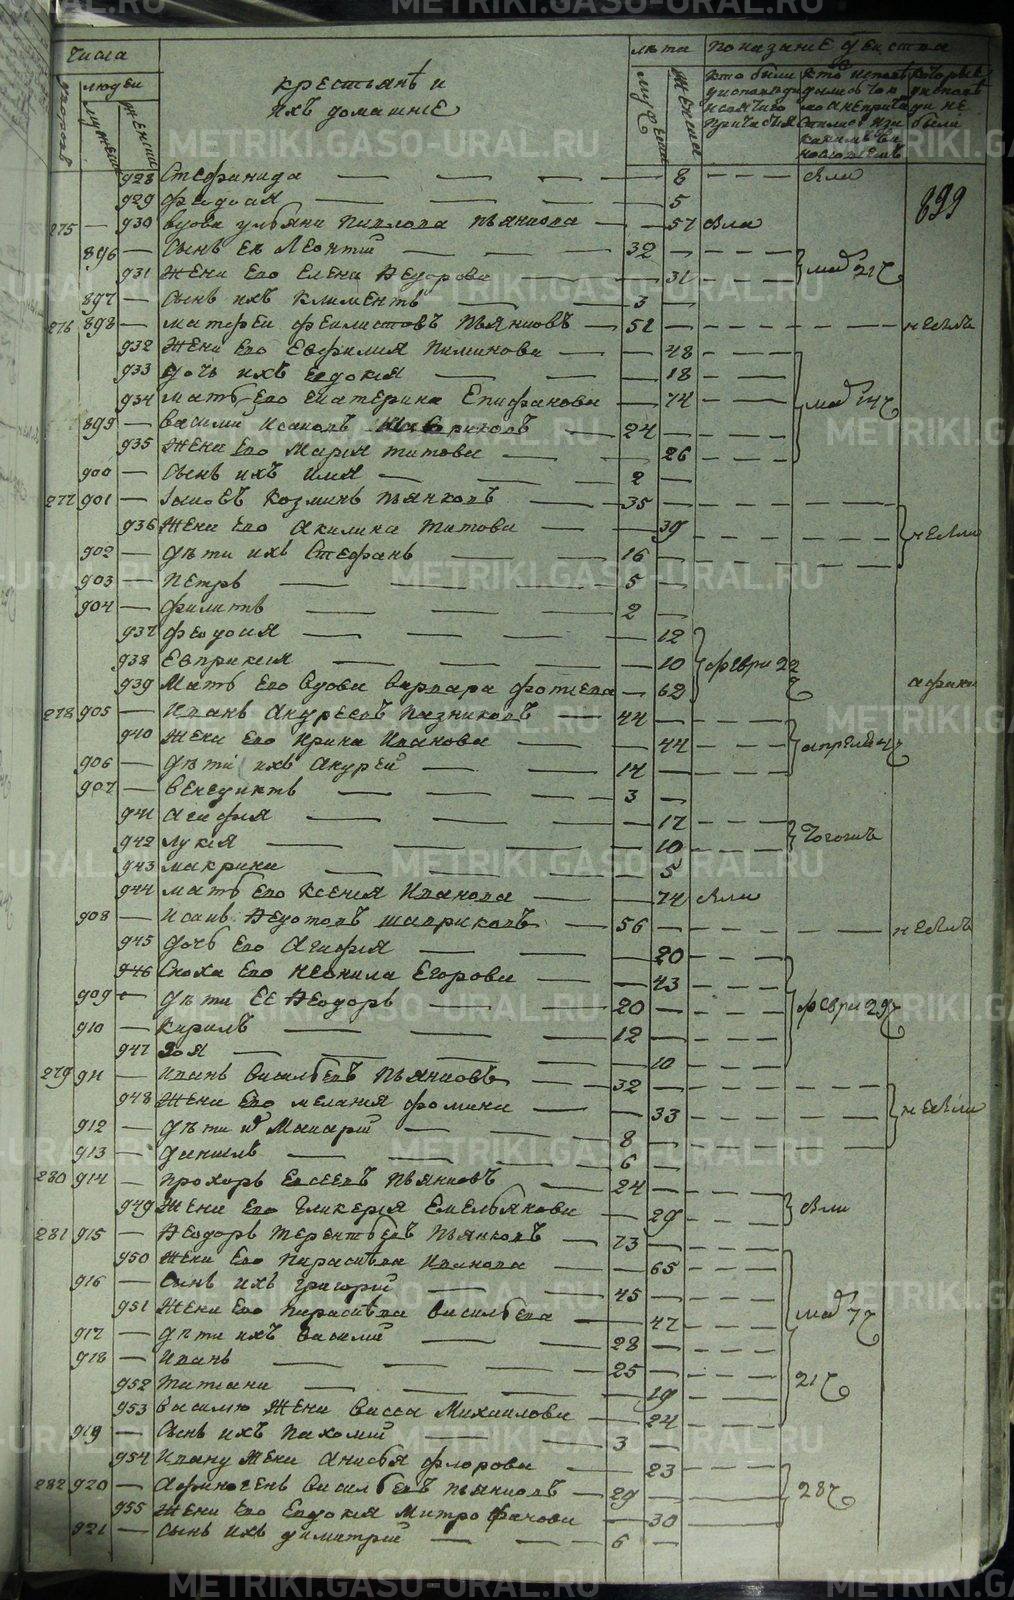 числа
лѣта показанїе дѣйства
людеи
крестьянѣ и
ихъ домашнїе
928 Стефанида 8 были
929 Федосия 5
899
275 930 вдова ульяна павлова пьянкова 57 была
896 Сынъ ея Леонтїй 32
931 Жена его Елена Ѳедорова 31 маѧ 21
897 Сынъ ихъ климентъ 3
276 898 матфеи феклистовъ Пьянковъ 52 не былъ
932 Жена его Евфимия Пименова 48
933 дочь ихъ евдокїя 18
934 мать его екатерина Епифанова 74 14
899 василии исаковъ Шавриковъ 24
935 жена его марїя титова 26
900 сынъ ихъ илия 2
277 901 Іаковъ козминъ пьянковъ 35
936 Жена его акилина титова 39 не были
902 дѣти ихъ Стефанъ 16
903 петръ 5
904 филипъ 2
937 федосия 12
938 Евпраксия 10 феврал 22
939 Мать его вдова варвара фотиева 62
278 905 Иванъ андреевъ казниковъ 44
940 жена его ирина иванова 44 апреля 4
906 дѣти ихъ андрей 14
907 венедиктъ 3
941 агафия 17
942 лукїя 10 тогожъ
943 макрина 5
944 мать его ксения иванова 74 была
908 исакъ Ѳедотовъ шавриковъ 56 не былъ
945 дочь его агафїя 20
946 сноха его неонила Егорова 43
909 дѣти ее Ѳеодоръ 20 феврал 29
910 кирилъ 12
947 Зоя 10
279 911 иванъ васильевъ пьянковъ 32
948 жена его мелания фомина 33 не были
912 дѣти их Макарїй 8
913 данилъ 6
280 914 прохоръ евсеевъ пьянковъ 24
949 жена его гликерїя емельянова 29 были
281 915 Ѳеодоръ терентьевъ пьянковъ 73
950 жена его параскева иванова 65
916 сынъ ихъ григорїй 45
951 жена его параскева васильева 47 7
917 дѣти ихъ василий 28
918 иванъ 25
952 татиана 19 21
953 василю жена васса михаилова 24
919 сынъ ихъ пахомїй 3
954 ивану жена анисья флорова 23
282 920 афиногенъ васильевъ пьянковъ 29 28
955 жена его евдокїя митрофанова 30
921 сынъ ихъ димитрїй 6
METRIKI.GASO-URAL.RU